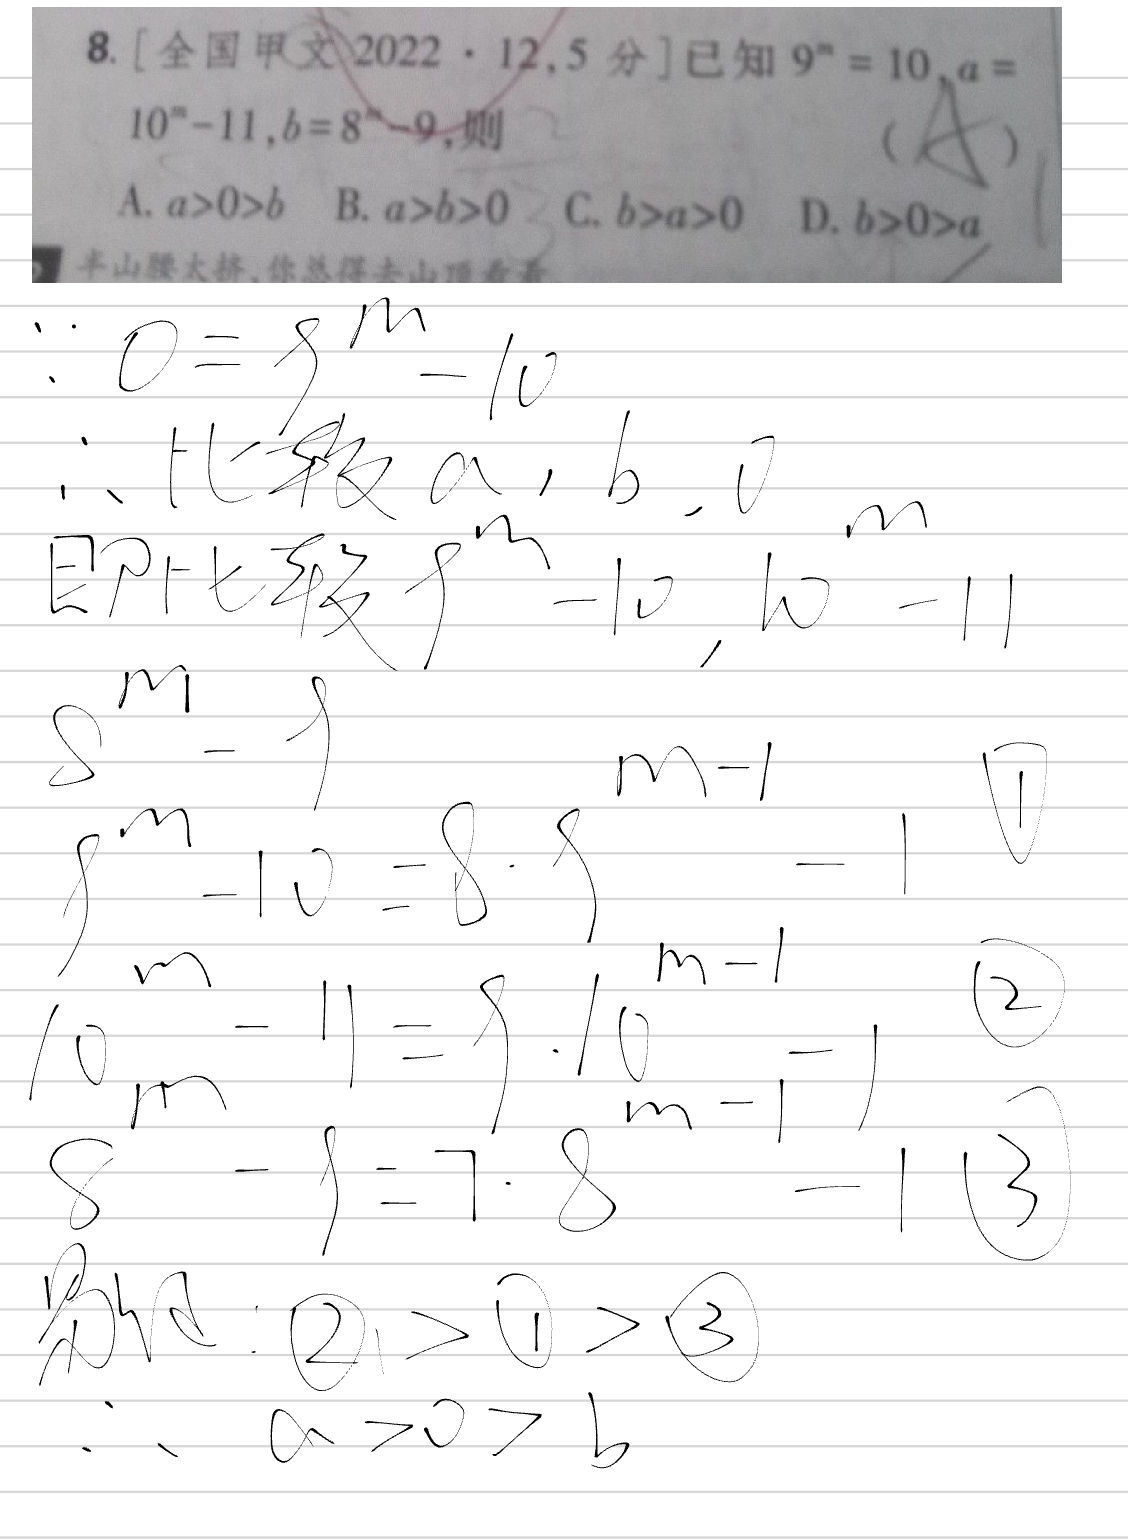 8. [全国甲文2022·12,5分]已知9ᵐ=10,a=
10ᵐ-11,b=8ᵐ-9,则 (A)
A. a>0>b B. a>b>0 C. b>a>0 D. b>0>a
半山腰太挤,你总得去山顶看看
∵ 0=9ᵐ-10
∴比较a,b,0
即比较9ᵐ-10,10ᵐ-11
8ᵐ-9
9ᵐ-10=8·9ᵐ⁻¹-1 ①
10ᵐ-11=9·10ᵐ⁻¹-1 ②
8ᵐ-9=7·8ᵐ⁻¹-1 ③
易证:②>①>③
∴ a>0>b